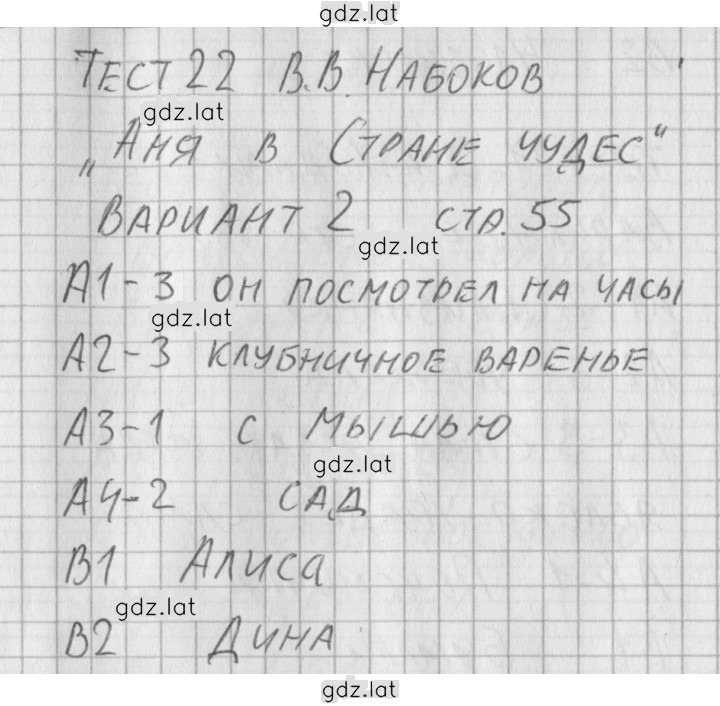 gdz.lat
ТЕСТ 22 В.В. НАБОКОВ
gdz.lat
„АНЯ В СТРАНЕ ЧУДЕС"
ВАРИАНТ 2 СТР. 55
gdz.lat
А1-3 ОН ПОСМОТРЕЛ НА ЧАСЫ
gdz.lat
А2-3 КЛУБНИЧНОЕ ВАРЕНЬЕ
А3-1 С МЫШЬЮ
gdz.lat
А4-2 САД
В1 АЛИСА
gdz.lat
В2 ДИНА
gdz.lat